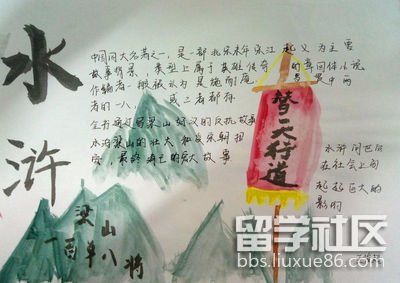 水浒
中国四大名著之一，是一部北宋末年宋江起义为主要
故事背景，类型上属于英雄传奇的章回体小说
作编者一般被认为是施耐庵，
者的一八， 或二者都有
全书通过写梁山好汉的反抗故事
水浒梁山的壮大和反宋朝招
安，最终消亡的宏大故事
替天行道
水浒问世后
在社会上的
起了巨大的
影响
梁山
一百单八将
留学社区
bbs.liuxue86.com